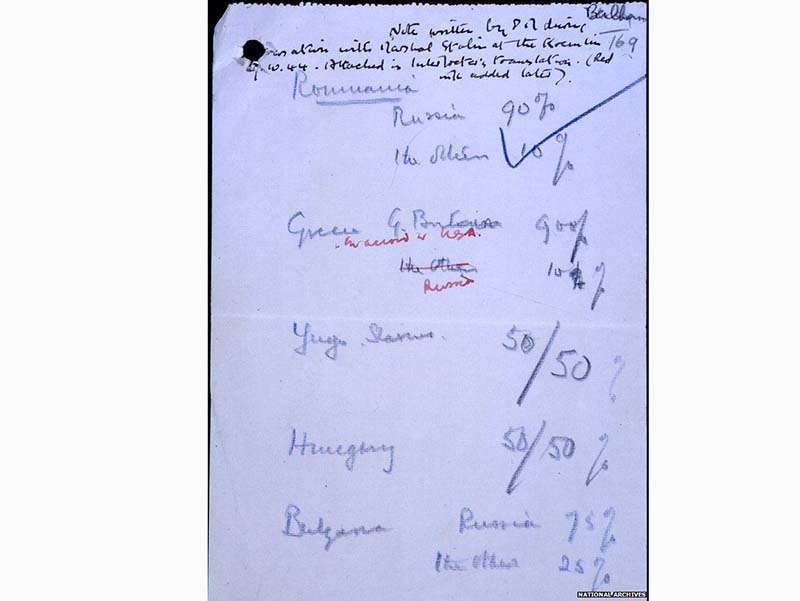 Note written by P.M during
conversation with Marshal Stalin at the Kremlin
9.10.44. Attached is Interpreter's translation. (Red
ink added later).
169
Roumania
Russia 90%
The others 10%
Greece G. Britain 90%
in accord w USA.
The Others 10%
Russia
Yugo Slavia. 50/50 %
Hungary 50/50 %
Bulgaria Russia 75%
The Others 25%
NATIONAL ARCHIVES